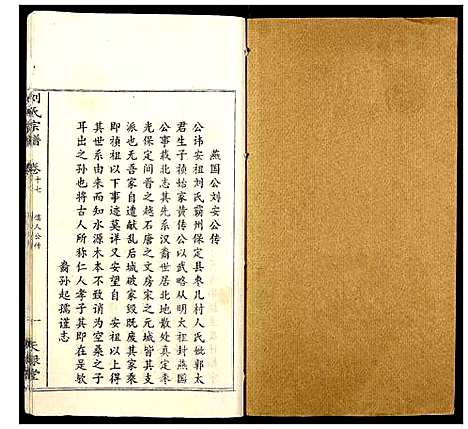 燕国公刘安公传
公讳安祖刘氏霸州保定县枣儿村人氏妣郭太
君生子祯始家黄传公以武略从明太祖封燕国
公事载北志其先系汉裔世居北地散处真定枣
光保定间晋之越石唐之文房宋之元城皆其支
派也无若家自遭献乱后城破家毁既废其家乘
即祯祖以下事迹莫详又安望自 安祖以上得
其世系由来而知水源木本不致消为空桑之子
耳出之孙也将古人所称仁人孝子其即在是欤
裔孙起孺谨志
刘氏宗谱
卷十七
儒人公传
一
天禄堂